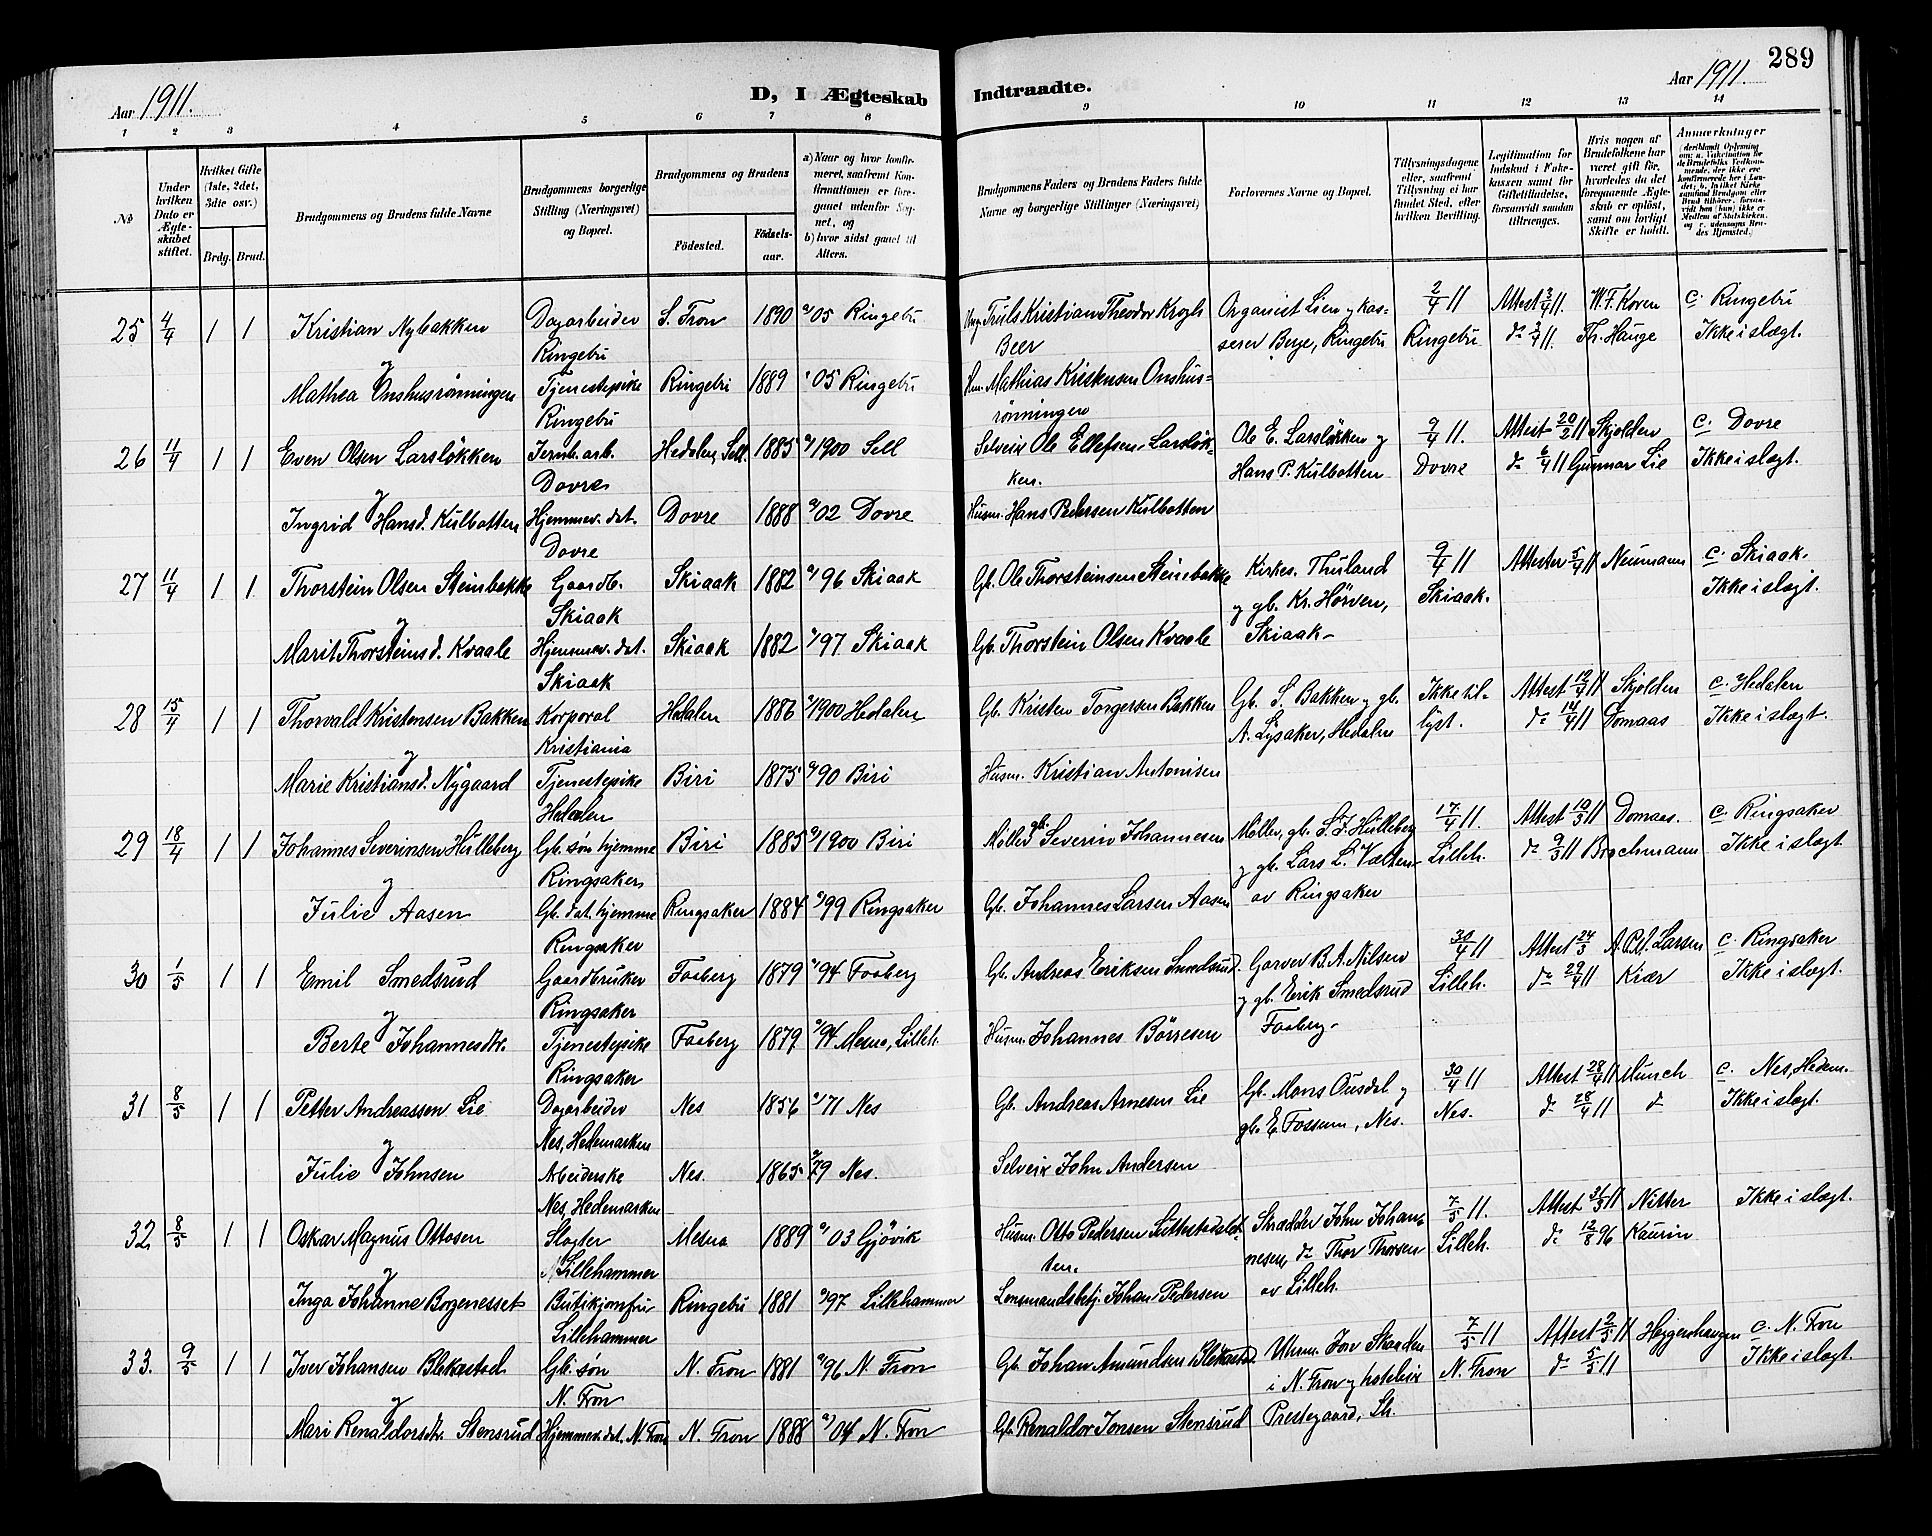 289
Aar 1911. D, I Ægteskab Indtraadte. Aar 1911.
1 2 3 4 5 6 7 8 9 10 11 12 13 14
№
Under hvilken Dato er Ægteskabet stiftet.
Hvilket Gifte (1ste, 2det, 3die osv.)
Brdg. Brud.
Brudgommens og Brudens fulde Navne
Brudgommens borgerlige Stilling (Næringsvei) og Bopæl.
Brudgommens og Brudens
Födested. Födselsaar.
a) Naar og hvor konfirmeret, saafremt Konfirmationen er foregaaet udenfor Sognet, og
b) hvor sidst gaaet til Alters.
Brudgommens Faders og Brudens Faders fulde Navne og borgerlige Stillinger (Næringsvei)
Forlovernes Navne og Bopæl.
Tillysningsdagene eller, saafremt Tillysning ei har fundet Sted, efter hvilken Bevilling.
Legitimation for Indskud i Enkekassen samt for Giftetilladelse, forsaavidt saadan tiltrænges.
Hvis nogen af Brudefolkene har været gift för, hvorledes da det foregaaende Ægteskab er oplöst, samt om lovligt Skifte er holdt.
Anmærkninger
25 4/4 1 1 Kristian Nybakken Dagarbeider S. Fron 1890 05 Ringebu Truls Kristian Theodor Krogh Organist Lien og kas- 2/4 11 Attest 3/4 11. W. F. Koren c. Ringebu
Ringebu Beer serer Berge, Ringebu Ringebu do 3/4 11. Th. Hauge Ikke i slægt.
og
Mathea Onshusrønningen Tjenestepike Ringebu 1889 05 Ringebu Hm. Mathias Kristensen Onshus-
Ringebu rønningen
26 11/4 1 1 Even Olsen Larsløkken Jernb. arb. Hedalen, Sell. 1885 1900 Sell Selveier Ole Ellefsen Larsløk- Ole E. Larsløkken og 9/4 11. Attest 20/2 11 Skjolden c. Dovre
Dovre ken. Hans P. Kulbotten Dovre do 6/4 11 Gunnar Lie Ikke i slægt.
og
Ingrid Hansd. Kulbotten Hjemmev. dat. Dovre 1888 02 Dovre Husm. Hans Pedersen Kulbotten
Dovre
27 11/4 1 1 Thorstein Olsen Steinbakke Gaardb. Skiaak 1882 96 Skiaak Gb. Ole Thorsteinsen Steinbakke Kirkes. Thuland 9/4 11 Attester 5/4 11 Neumann c. Skiaak.
Skiaak og gb. Kr. Hørven, Skiaak. Ikke i slægt.
og
Marit Thorsteinsd. Kvaale Hjemmev. dat. Skiaak 1882 97 Skiaak Gb. Thorstein Olsen Kvaale Skiaak
Skiaak
28 15/4 1 1 Thorvald Kristensen Bakken Korporal Hedalen 1886 1900 Hedalen Gb. Kristen Torgersen Bakken Gb. S. Bakken og gb. Ikke til- Attest 12/4 11 Skjolden c. Hedalen
Kristiania A. Lysaker, Hedalen lyst. do 14/4 11 Domaas Ikke i slægt.
og
Marie Kristiansd. Nygaard Tjenestepike Biri 1875 90 Biri Husm. Kristian Antonisen
Hedalen
29 18/4 1 1 Johannes Severinsen Hulleberg Gb. søn hjemme Biri 1885 1900 Biri Møller Severin Johannesen Møller, gb. S. J. Hulleberg 17/4 11. Attest 10/3 11 Domaas. c. Ringsaker
Ringsaker og gb. Lars L. Vælten Lilleh. do 9/3 11 Brochmann Ikke i slægt.
og
Julie Aasen Gb. dat. hjemme Ringsaker 1884 99 Ringsaker Gb. Johannes Larsen Aasen av Ringsaker
Ringsaker
30 1/5 1 1 Emil Smedsrud Gaardbruker Faaberg 1879 94 Faaberg Gb. Andreas Eriksen Smedsrud. Garver B. A. Nilsen 30/4 11 Attest 24/3 Larsen c. Ringsaker
Ringsaker og gb. Erik Smedsrud Lilleh. do 29/4 11 Kiær Ikke i slægt.
og
Berte Johannesdtr. Tjenestepike Faaberg 1879 94 Mesna, Lilleh. Husm. Johannes Børresen Faaberg.
Ringsaker
31 8/5 1 1 Petter Andreassen Lie Dagarbeider Nes 1856 71 Nes Gb. Andreas Arnesen Lie Gb. Mons Ousdal og 30/4 11 Attest 28/4 11 Munch c. Nes, Hedem.
Nes, Hedemarken gb. E. Fossum, Nes. Nes. do 28/4 11 do Ikke i slægt.
og
Julie Johnsen Arbeiderske Nes. 1865 79 Nes. Selveier John Andersen
Nes, Hedemarken
32 8/5 1 1 Oskar Magnus Ottosen Slagter Mesna 1889 03 Gjøvik Husm. Otto Pedersen Skrædder John Johan- 7/5 11. Attest 31/3 11 Nitter Ikke i slægt.
Lillehammer ten. nesen, do Thor Thorsen Lilleh. do 12/8 96 Kaurin
og
Inga Johanne Borgenesset Butikjomfru Ringebu 1881 97 Lillehammer Lensmandsbetj. Johan Pedersen av Lilleh.
Lillehammer
33. 9/5 1 1 Iver Johansen Blekastad Gb. søn N. Fron 1881 96 N. Fron Gb. Johan Amundsen Blekastad. Uhrm. Iver Skurdal 7/5 11 Attest 2/5 11 Heggenhaugen c. N. Fron
N. Fron i N. Fron og hoteleier N. Fron do 5/5 11 Ikke i slægt.
og
Mari Renaldorsdtr. Stensrud Hjemmev. dat. N. Fron N. Fron 1888 04 N. Fron Gb. Renaldor Jonsen Stensrud Prestegaard, Lh.